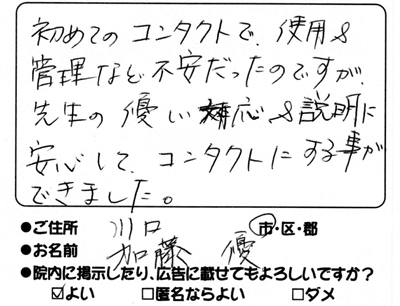 初めてのコンタクトで、使用&
管理など不安だったのですが、
先生の優しい対応&説明に
安心して、コンタクトにする事が
できました。
●ご住所 川口 市・区・郡
●お名前 加藤 優
●院内に掲示したり、広告に載せてもよろしいですか?
☑よい □匿名ならよい □ダメ